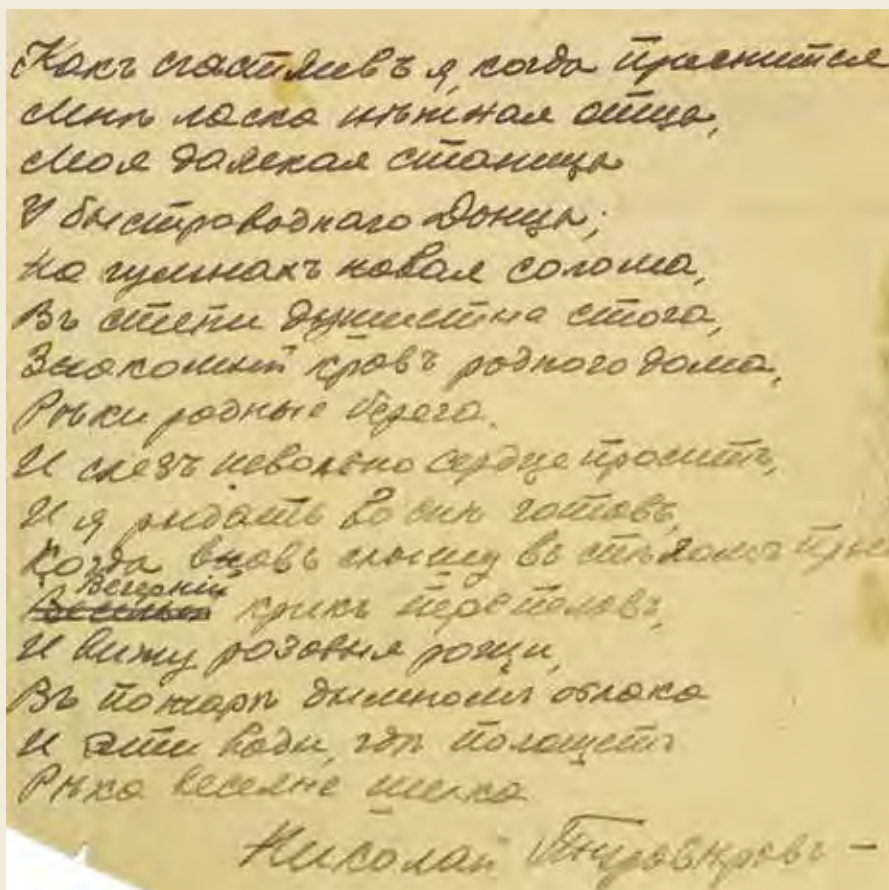 Какъ счастливъ я, когда приснится
Мнѣ ласка нѣжная отца,
Моя далекая станица
У быстроводнаго Донца;
На гумнахъ новая солома,
Въ степи душистые стога,
Знакомый кровъ родного дома,
Рѣки родные берега.
И слезъ невольно сердце проситъ,
И я рыдать во снѣ готовъ,
Когда вновь слышу въ спѣломъ
Вечерній крикъ перепеловъ,
И вижу розовыя рощи,
Въ пожарѣ дымномъ облака
И эти воды, гдѣ полощетъ
Рѣка веселые шелка
Николай Туровѣровъ –